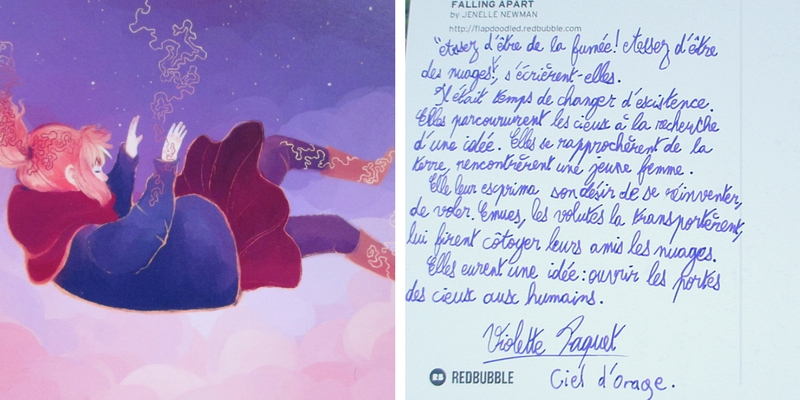 FALLING APART
by JENELLE NEWMAN
http://flapdoodled.redbubble.com
"Assez d'être de la fumée! Assez d'être
des nuages!", s'écrièrent-elles.
Il était temps de changer d'existence.
Elles parcoururent les cieux à la recherche
d'une idée. Elles se rapprochèrent de la
terre, rencontrèrent une jeune femme.
Elle leur exprima son désir de se réinventer,
de voler. Emues, les volutes la transportèrent,
lui firent côtoyer leurs amis les nuages.
Elles eurent une idée : ouvrir les portes
des cieux aux humains.
Violette Paquet
RB REDBUBBLE
Ciels d'orage.